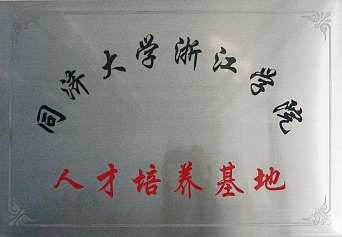 同济大学浙江学院
人才培养基地